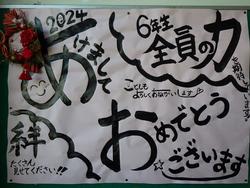 2024
あけまして
おめでとう
☆ございます
ことしも
よろしくおねがいします
6年生
全員の力
を期待してます!
絆
たくさん
見せてください!!